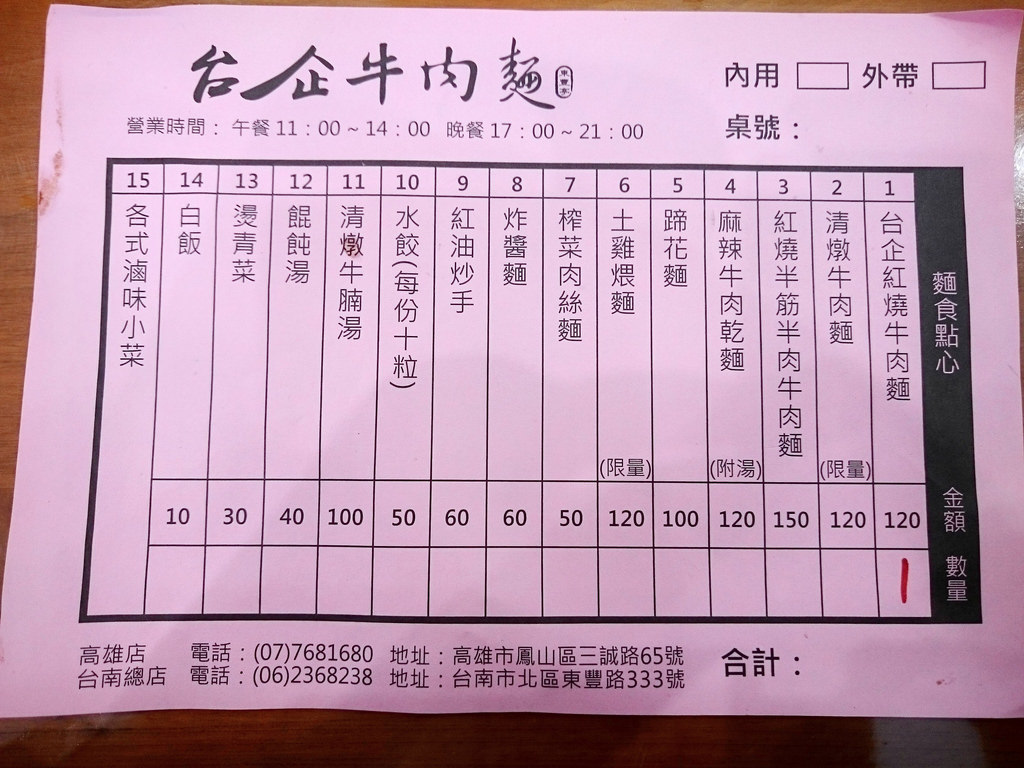 台企牛肉麵 東豐店
內用 外帶
營業時間： 午餐 11：00 ~ 14：00 晚餐 17：00 ~ 21：00
桌號：
麵食點心 金額 數量
1 台企紅燒牛肉麵 120
2 清燉牛肉麵 (限量) 120
3 紅燒半筋半肉牛肉麵 150
4 麻辣牛肉乾麵 (附湯) 120
5 蹄花麵 100
6 土雞煨麵 (限量) 120
7 榨菜肉絲麵 50
8 炸醬麵 60
9 紅油炒手 60
10 水餃(每份十粒) 50
11 清燉牛腩湯 100
12 餛飩湯 40
13 燙青菜 30
14 白飯 10
15 各式滷味小菜
高雄店 電話：(07)7681680 地址：高雄市鳳山區三誠路65號
台南總店 電話：(06)2368238 地址：台南市北區東豐路333號
合計：